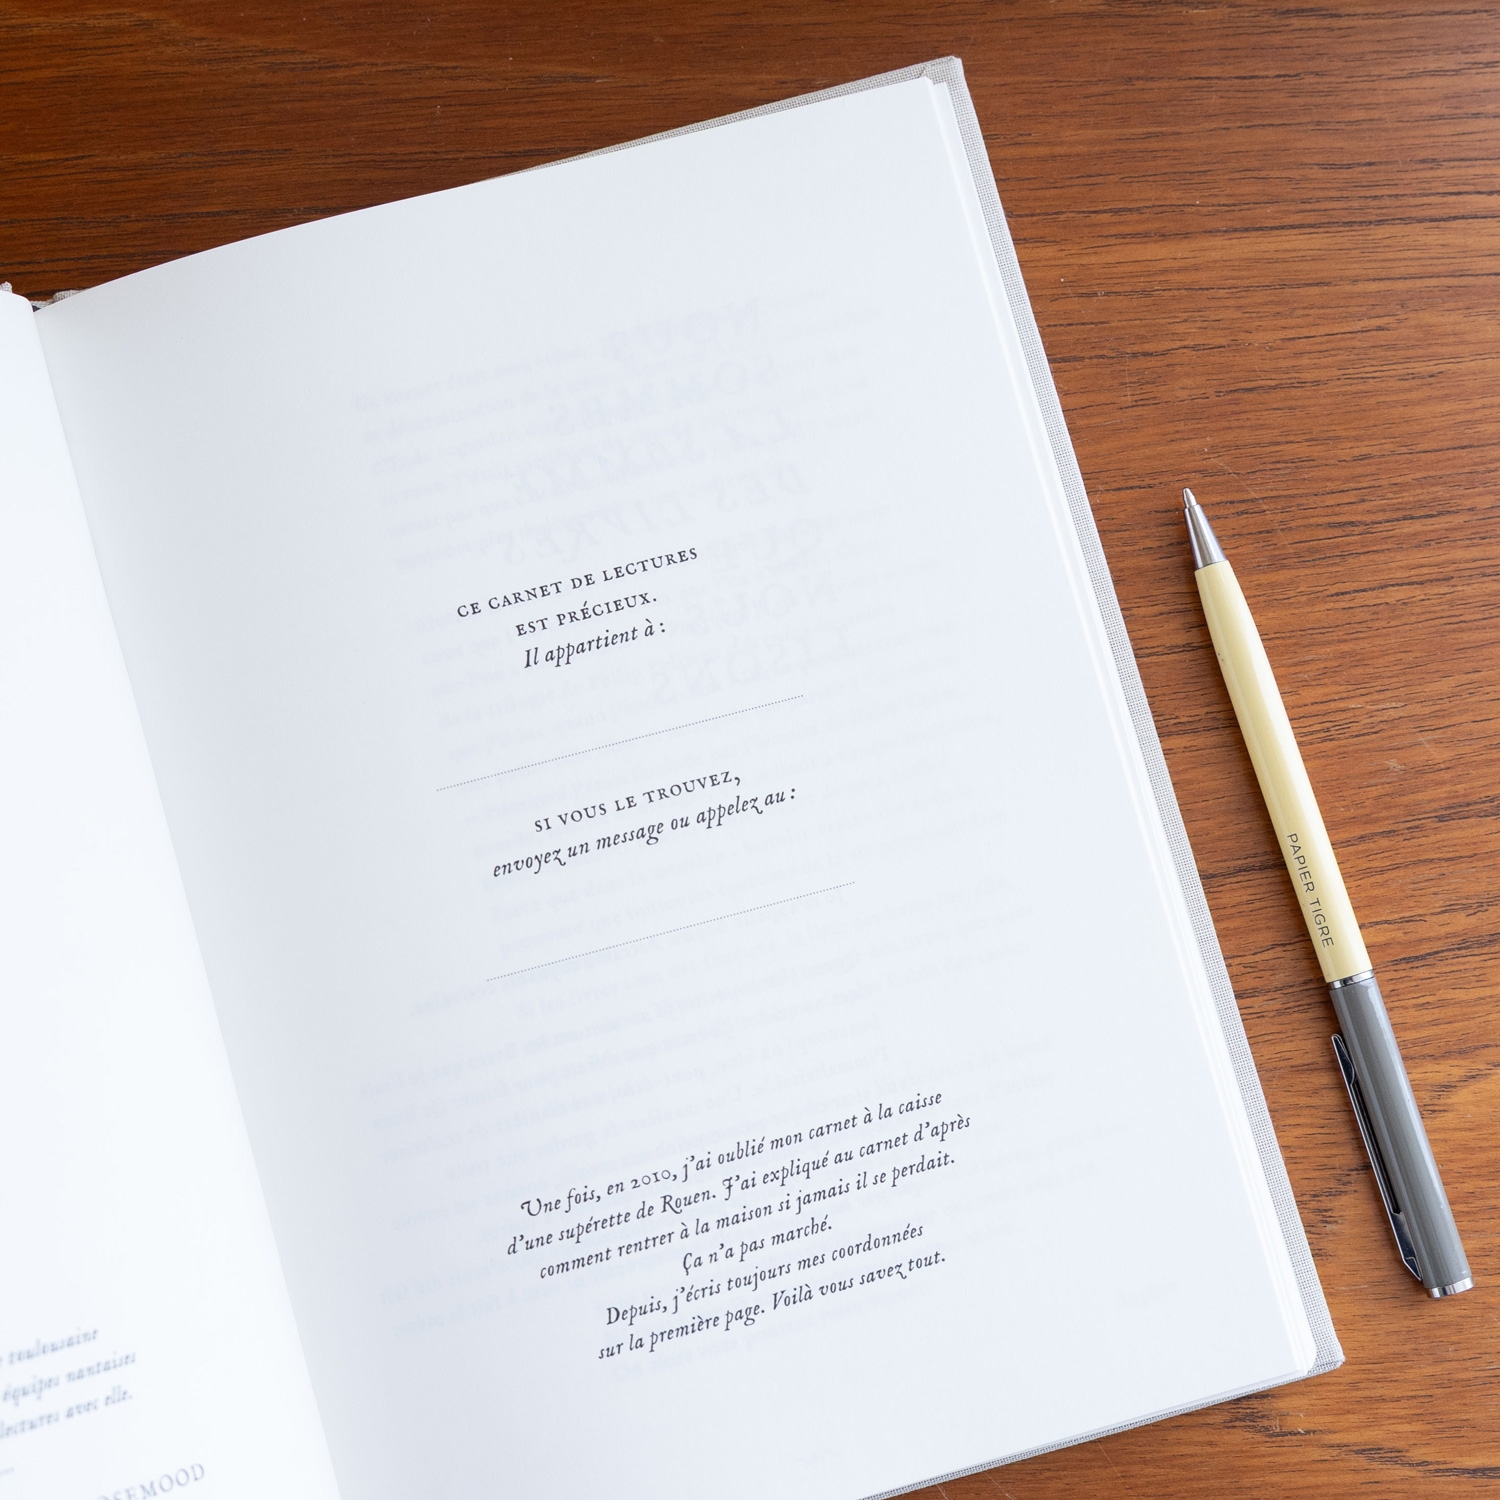 CE CARNET DE LECTURES
EST PRÉCIEUX.
Il appartient à :
SI VOUS LE TROUVEZ,
envoyez un message ou appelez au :
Une fois, en 2010, j'ai oublié mon carnet à la caisse
d'une supérette de Rouen. J'ai expliqué au carnet d'après
comment rentrer à la maison si jamais il se perdait.
Ça n'a pas marché.
Depuis, j'écris toujours mes coordonnées
sur la première page. Voilà vous savez tout.
toulousaine
équipes nantaises
lectures avec elle.
PAPIER TIGRE